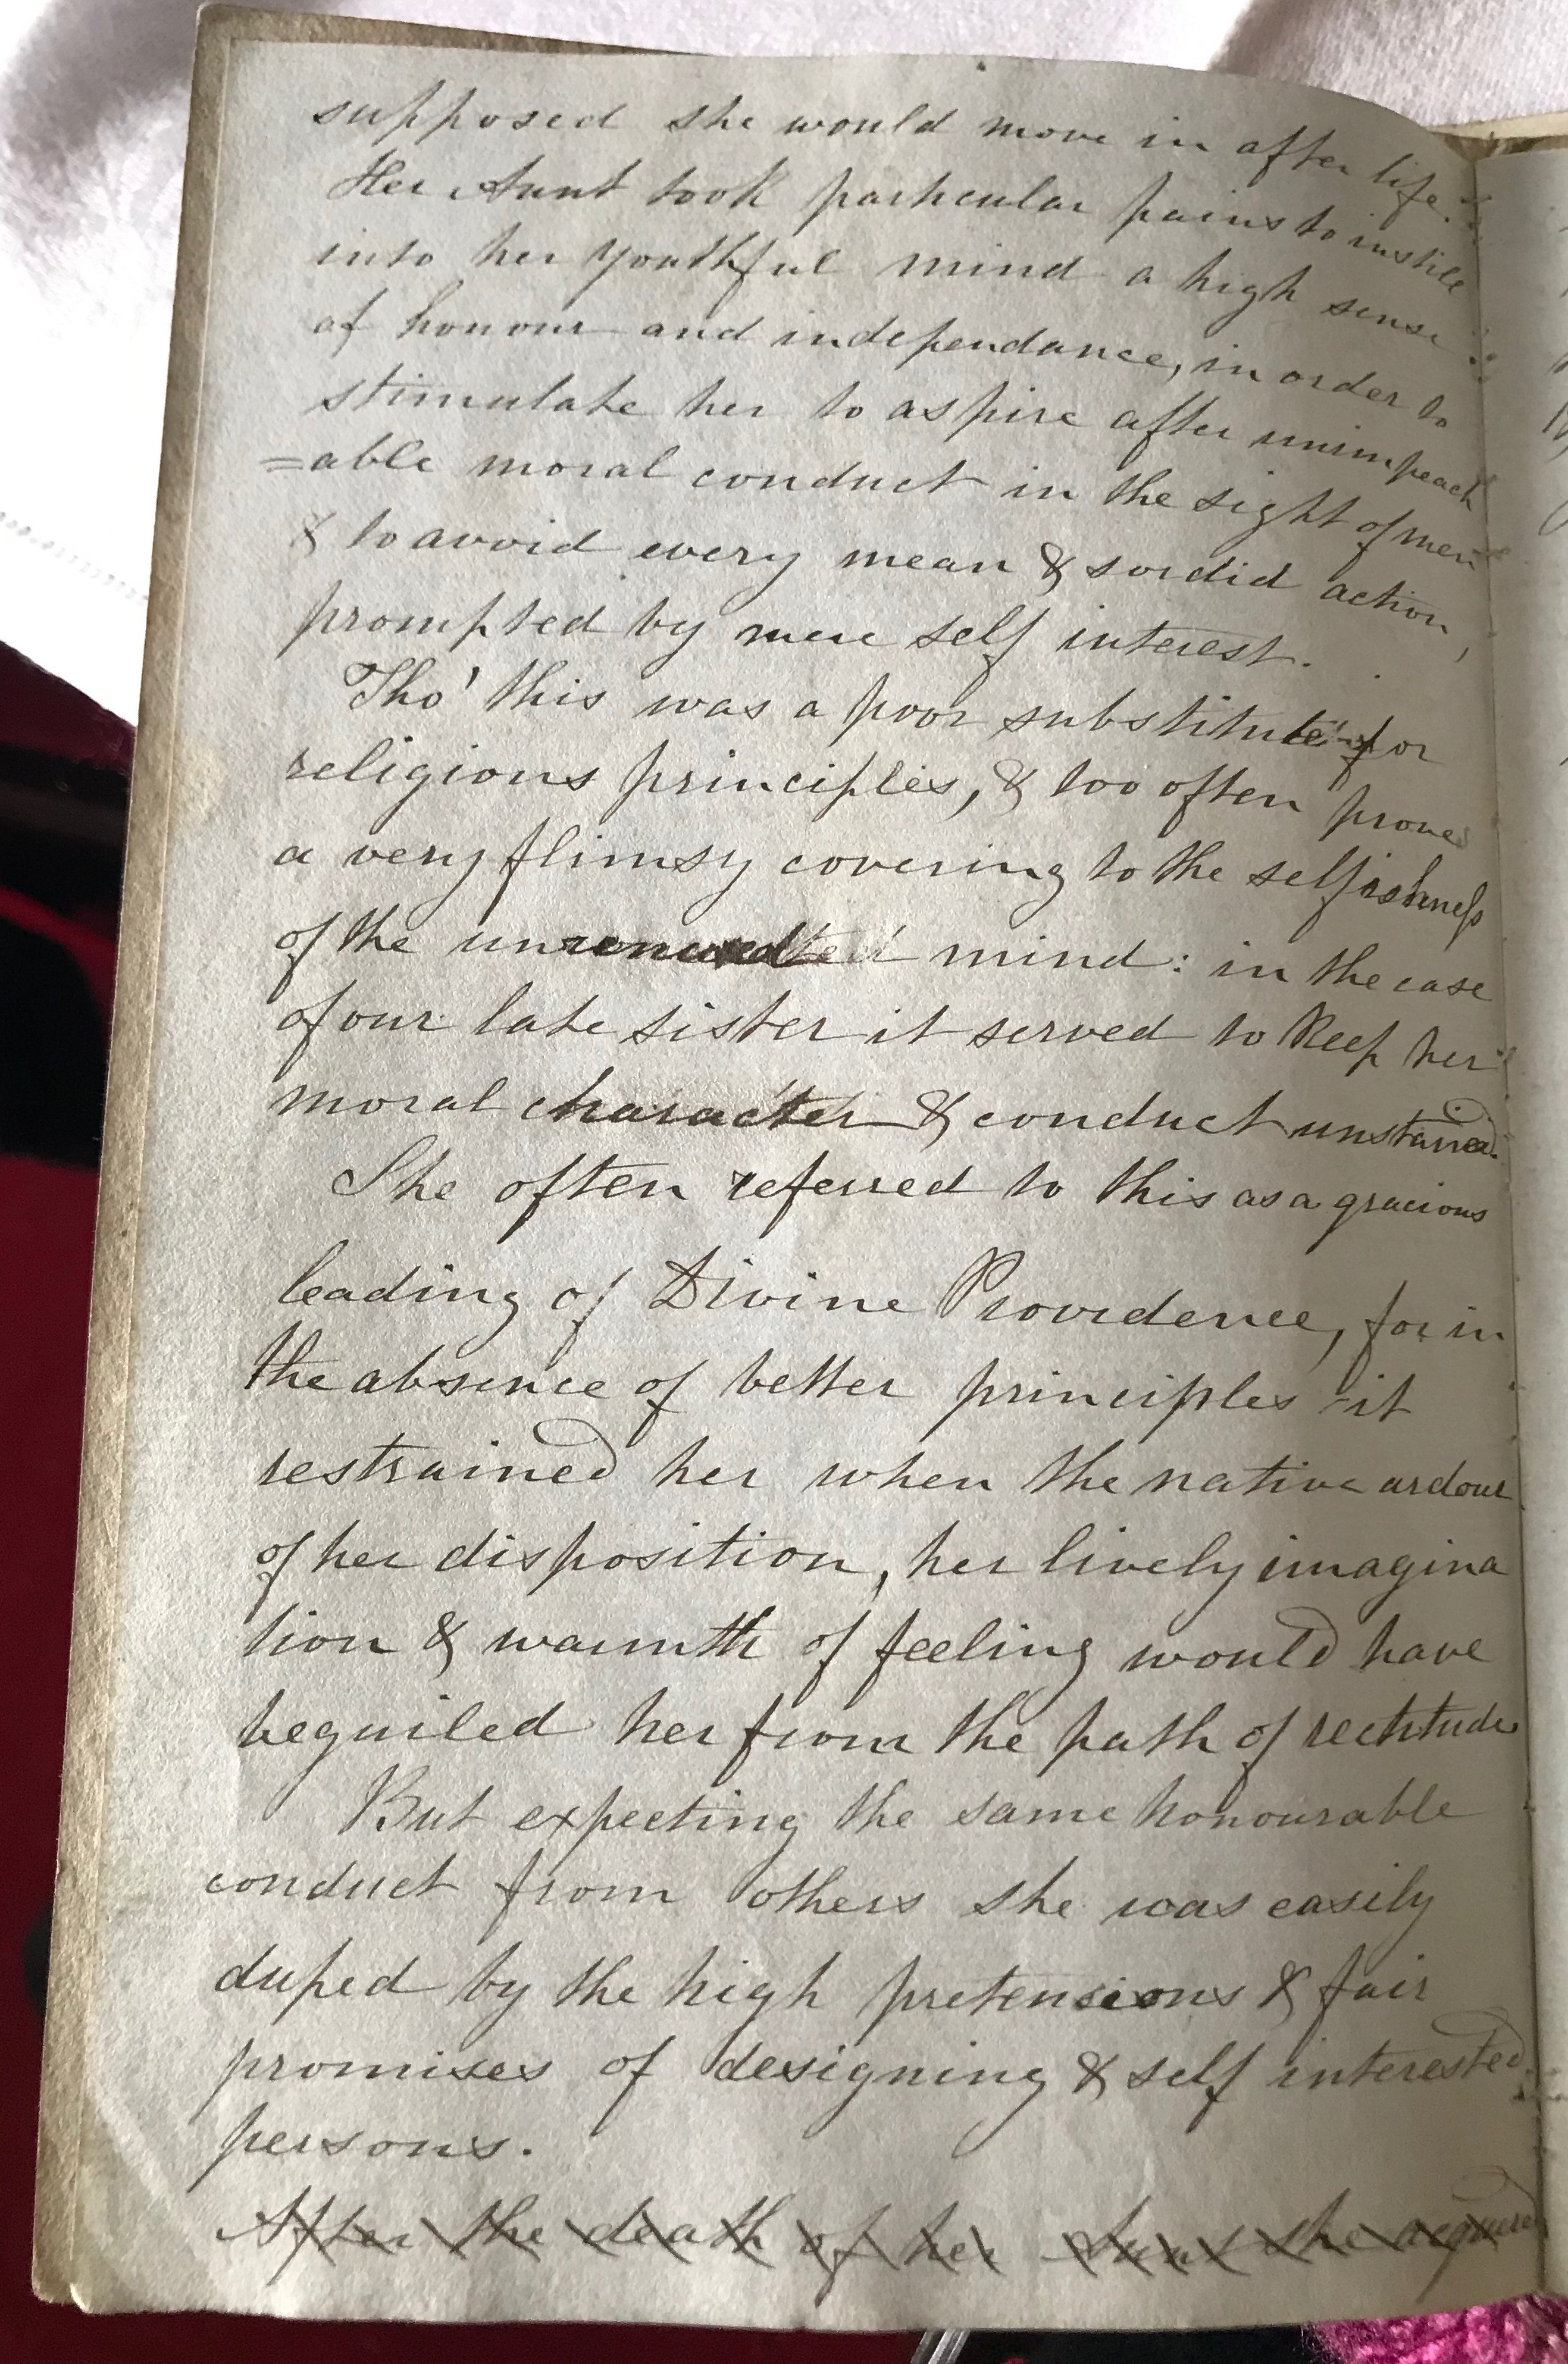 supposed she would move in after life.
Her Aunt took particular pains to instill
into her youthful mind a high sense
of honour and independance, in order to
stimulate her to aspire after unimpeach
=able moral conduct in the sight of men
& to avoid every mean & sordid action,
prompted by mere self interest.
Tho' this was a poor substitute for
religious principles, & too often proves
a very flimsy covering to the selfishness
of the unrenewed mind: in the case
of our late sister it served to keep her
moral character & conduct unstained.
She often referred to this as a gracious
leading of Divine Providence, for in
the absence of better principles it
restrained her when the native ardour
of her disposition, her lively imagina
tion & warmth of feeling would have
beguiled her from the path of rectitude
But expecting the same honourable
conduct from others she was easily
duped by the high pretensions & fair
promises of designing & self interested
persons.
After the death of her Aunt she acquired